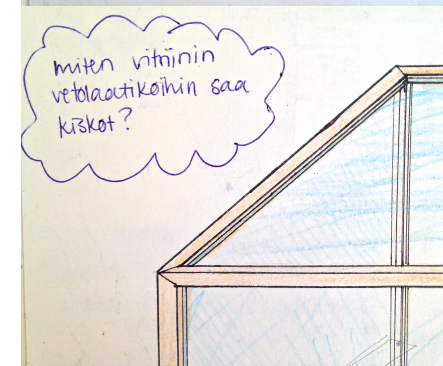 miten vitriinin
vetolaatikoihin saa
kiskot?